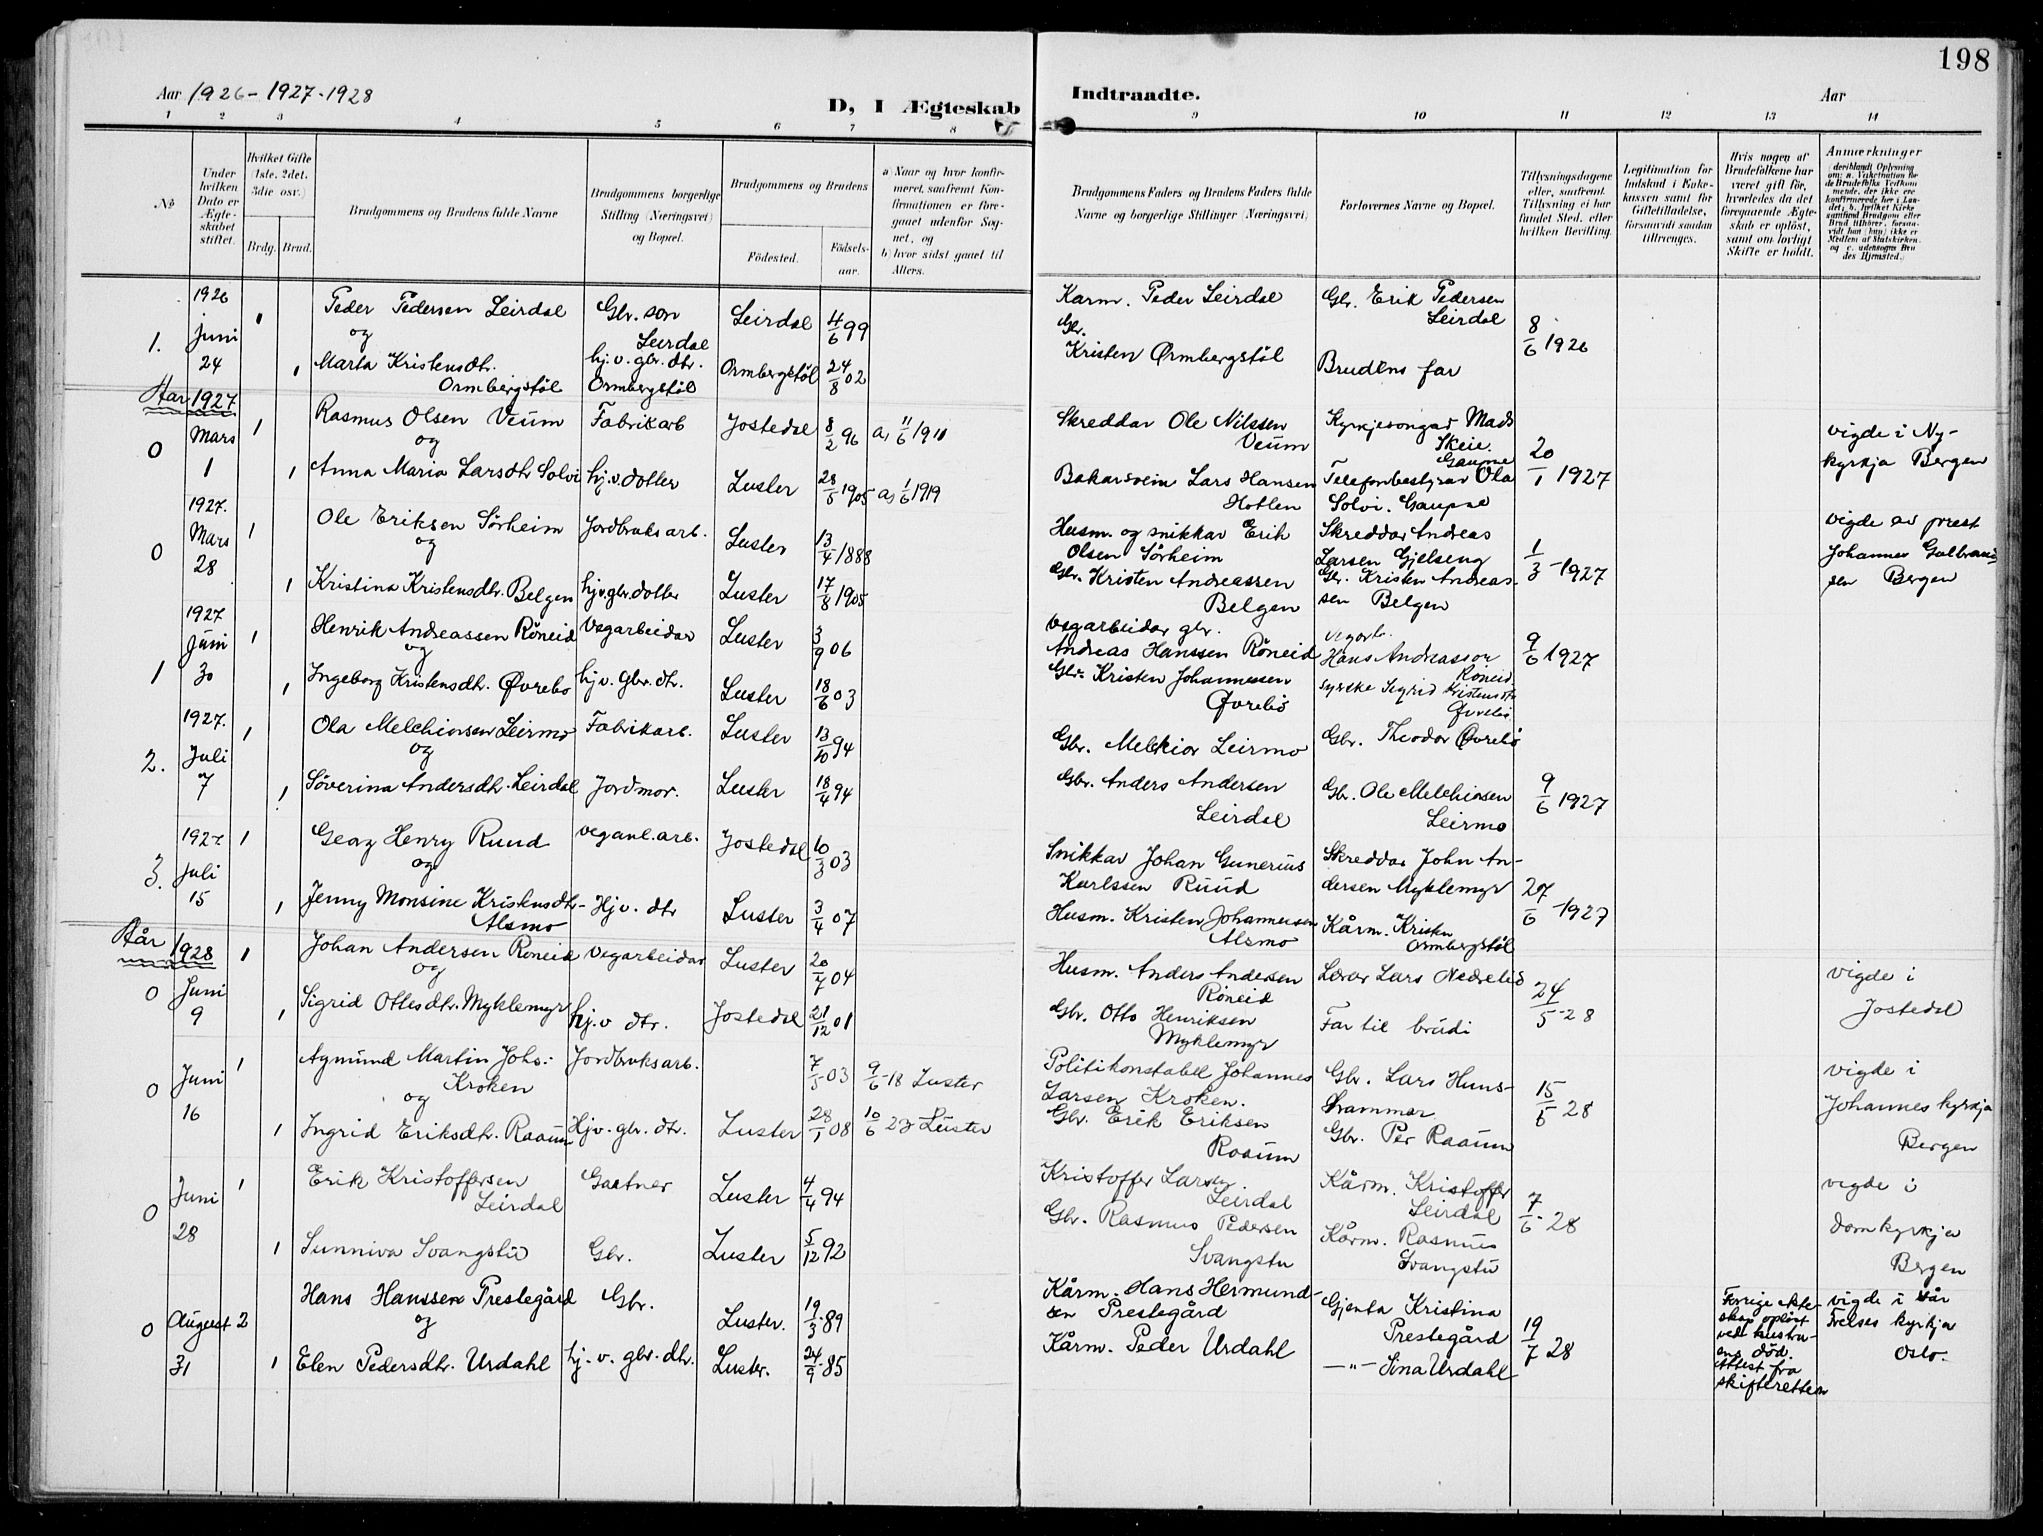 198
Aar 1926 - 1927 - 1928
D, I Ægteskab
Indtraadte.
Aar
1 2 3 4 5 6 7 8 9 10 11 12 13 14
No
Under hvilken Dato er Ægteskabet stiftet.
Hvilket Gifte (1ste, 2det, 3die osv.)
Brdg. Brud.
Brudgommens og Brudens fulde Navne
Brudgommens borgerlige Stilling (Næringsvei) og Bopæl.
Brudgommens og Brudens
Fødested.
Fødselsaar.
a) Naar og hvor konfirmeret, saafremt Konfirmationen er foregaaet udenfor Sognet, og
b) hvor sidst gaaet til Alters.
Brudgommens Faders og Brudens Faders fulde Navne og borgerlige Stillinger (Næringsvei)
Forlovernes Navne og Bopæl.
Tillysningsdagene eller, saafremt Tillysning ei har fundet Sted, efter hvilken Bevilling.
Legitimation for Indskud i Enkekassen samt for Giftetilladelse, forsaavidt saadan tiltrænges.
Hvis nogen af Brudefolkene har været gift før, hvorledes da det foregaaende Ægteskab er opløst, samt om lovligt Skifte er holdt.
Anmærkninger
1926
1. juni 24
1 Peder Pedersen Leirdal Gbr. son Leirdal Leirdal 4/6 99
og
1 Marta Kristensdtr. Ormbergstöl hj.v. gbr. dtr. Ormbergstöl Ormbergstöl 24/8 02
Karm. Peder Leirdal Gbr. Erik Pedersen Leirdal 8/6 1926
Gbr. Kristen Ørmbergstöl Brudens far
Aar 1927
0 Mars 1
1 Rasmus Olsen Veum Fabrikarb Jostedal 8/2 96 a, 11/6 1911
og
1 Anna Maria Larsdtr Solvi hj.v. dotter Luster 28/5 1905 a, 1/6 1919
Skreddar Ole Nilssen Veum Kyrkjesongar Mads Skeie. Gaupne 20/1 1927 vigde i Nykyrkja Bergen
Bakarsvein Lars Hansen Hotlen Telefonbestyrar Ola Solvi. Gaupne
1927.
0 Mars 28
1 Ole Eriksen Sørheim Jordbruksarb. Luster 13/4 1888
og
1 Kristina Kristensdtr. Belgen hjv.gbr.dotter Luster 17/8 1905
Husm. og snikkar Erik Olsen Sørheim Skreddar Andreas Larsen Gjelseng 1/3 - 1927 vigde av prest Johannes Gulbrandsen Bergen
Gbr. Kristen Andreassen Belgen Gbr. Kristen Andreassen Belgen
1927
1 Juni 30
1 Henrik Andreassen Röneid Vegarbeidar Luster 3/9 06
og
1 Ingeborg Kristensdtr. Øvrebo hj.v. gbr. dtr. Luster 18/6 03
Vegarbeidar gbr. Andreas Hanssen Röneid Vegarb. Hans Andreasson Röneid 9/6 1927
Gbr. Kristen Johannessen Øvrebö syrske Sigrid Kristensdtr Øvrebö
1927.
2. Juli 7
1 Ola Melchiorsen Leirmo Fabrikarb. Luster 13/10 94
og
1 Söverina Andersdtr. Leirdal Jordmor. Luster 18/4 94
Gbr. Melkior Leirmo Gbr. Theodor Øvrebö
Gbr. Anders Andersen Leirdal Gbr. Ole Melchiorsen Leirmo 9/6 1927
1927.
3. juli 15
1 Georg Henry Ruud veganl.arb. Jostedal 10/3 03
og
1 Jenny Monsine Kristensdtr- Alsmo Hjv. dtr Luster 3/4 07
Snikkar Johan Gunerius Karlssen Ruud Skreddar John Andersen Myklemyr 27/6 - 1927
Husm. Kristen Johannessen Alsmo Kårm. Kristen Ormbergstöl
Aår 1928
0 Juni 9
1 Johan Andersen Röneid Vegarbeidar Luster 20/7 04
og
1 Sigrid Ottesdtr. Myklemyr hj.v dtr. Jostedal 21/12 01
Husm. Anders Andersen Röneid Lærar Lars Nedrelid 24/5 - 28 vigde i Jostedal
Gbr. Otto Henriksen Myklemyr Far til brudi
0 Juni 16
1 Aymund Martin Johs: Kroken Jordbruksarb. 7/5 - 03 9/6 - 18 Luster
og
1 Ingrid Eriksdtr. Raaum Hjv. gbr. dtr. Luster 28/1 08 10/6 23 Luster
Politikonstabel Johannes Larsen Kroken. Gbr. Lars Hunshammar 15/5 28 vigde i Johannes kyrkja Bergen
Gbr. Erik Eriksen Raaum Gbr. Per Raaum
0 Juni 28
1 Erik Kristoffersen Leirdal Gartner Luster 4/4 94
1 Sunniva Svangstu Gbr. Luster 5/12 92
Kristoffer Larsen Leirdal Kårm. Kristoffer Leirdal 7/6 - 28 vigde i domkyrkja Bergen
Gbr. Rasmus Pedersen Svangstu Kårm. Rasmus Svangstu
0 August 31
2 Hans Hanssen Prestegård Gbr. Luster. 19/3 - 89
og
1 Elen Pedersdtr. Urdahl hj. v. gbr. dtr. Luster. 24/9 - 85
Kårm. Hans Hermundsen Prestegård Gjenta Kristina Prestegård 19/7 28 Forrige ekteskap opløst ved hustruens død. Attest fra skifteretten vigde i Vår Frelses kyrkja Oslo.
Kårm. Peder Urdahl —"— Sina Urdahl